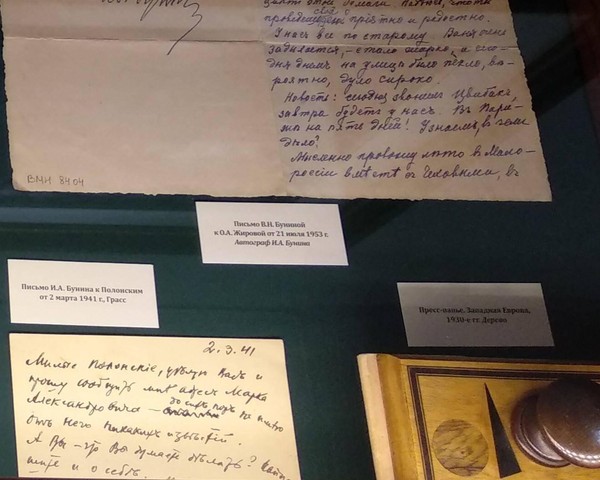 проведешь свято и радостно.
У насъ все по старому. Ваня очень
задыхается, – стало жарко, и сего-
дня днемъ на улице было пекло, ве-
роятно, дуло сироко.
Новость: сегодня звонилъ Цвибакъ,
завтра будетъ у насъ. Въ Пари-
жѣ на пять дней! Узнаемъ, в чемъ
дѣло?
Мысленно провожу лѣто в Мало-
россіи вмѣстѣ съ Чеховыми, въ
ВМН 8404
Письмо В.Н. Буниной
к О.А. Жировой от 21 июля 1953 г.
Автограф И.А. Бунина
Письмо И.А. Бунина к Полонским
от 2 марта 1941 г., Грасс
Пресс-папье. Западная Европа,
1930-е гг. Дерево
2.3.41
Милые Полонскіе, цѣлую Васъ и
прошу сообщить мнѣ адресъ Марка
Александровича – до сихъ поръ не имѣю
отъ него никакихъ извѣстій.
А Вы – что Вы думаете дѣлать?
и о себѣ.